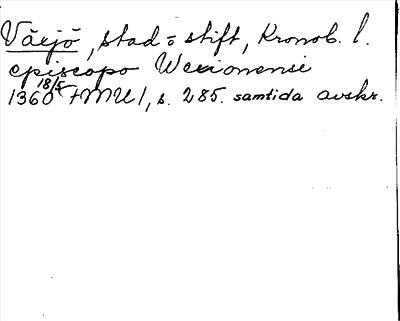 Växjö, stad = stift, Kronob. l.
episcopo Wexionensi
1360 18/5 FMU 1, s. 285. samtida avskr.